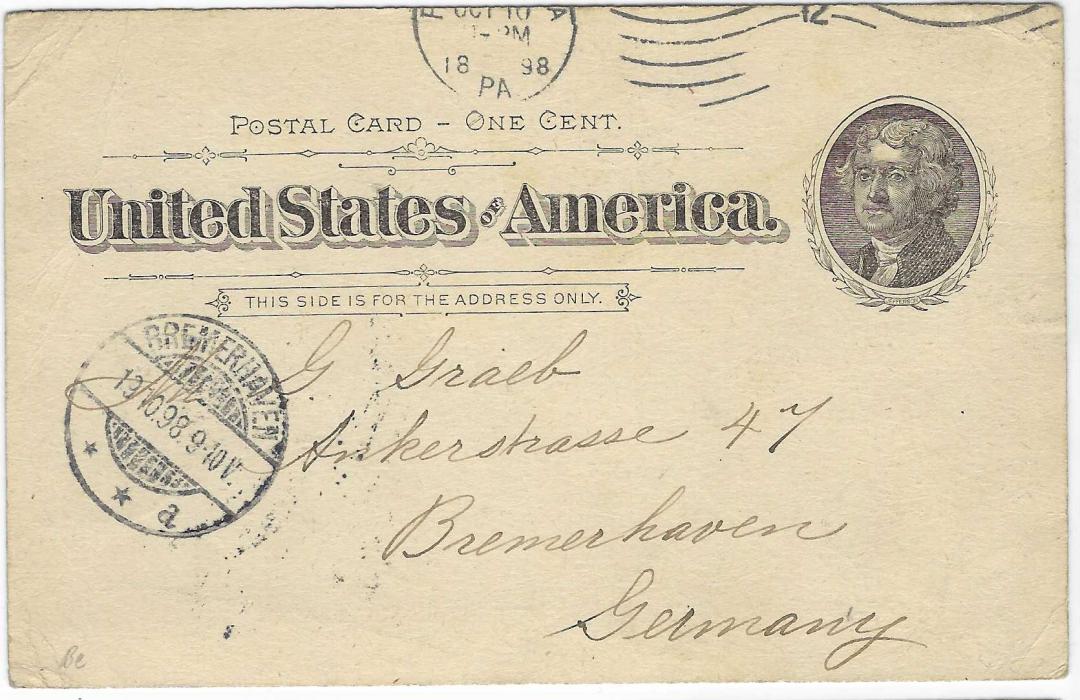 OCT 10
PM
18 98
PA
12
POSTAL CARD – ONE CENT.
United States OF America.
THIS SIDE IS FOR THE ADDRESS ONLY.
BREMERHAVEN
19.10.98.9-10V.
a
G Graeb
Ankerstrasse 47
Bremerhaven
Germany